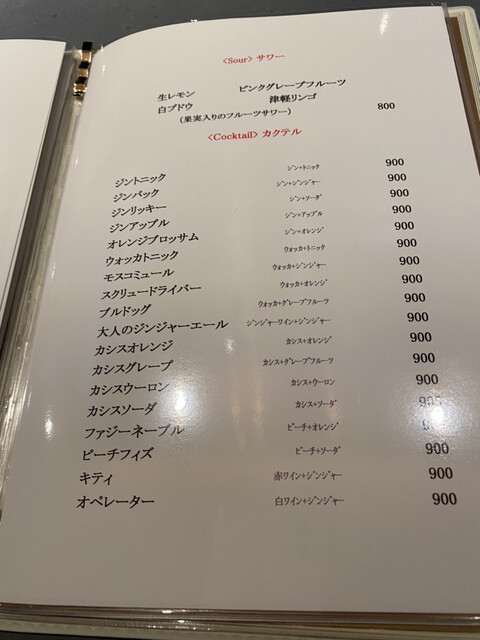 <Sour> サワー
生レモン ピンクグレープフルーツ
白ブドウ 津軽リンゴ
(果実入りのフルーツサワー) 800
<Cocktail> カクテル
ジントニック ジン+トニック 900
ジンバック ジン+ジンジャー 900
ジンリッキー ジン+ソーダ 900
ジンアップル ジン+アップル 900
オレンジブロッサム ジン+オレンジ 900
ウォッカトニック ウォッカ+トニック 900
モスコミュール ウォッカ+ジンジャー 900
スクリュードライバー ウォッカ+オレンジ 900
ブルドッグ ウォッカ+グレープフルーツ 900
大人のジンジャーエール ジンジャーワイン+ジンジャー 900
カシスオレンジ カシス+オレンジ 900
カシスグレープ カシス+グレープフルーツ 900
カシスウーロン カシス+ウーロン 900
カシスソーダ カシス+ソーダ
ファジーネーブル ピーチ+オレンジ
ピーチフィズ ピーチ+ソーダ 900
キティ 赤ワイン+ジンジャー 900
オペレーター 白ワイン+ジンジャー 900